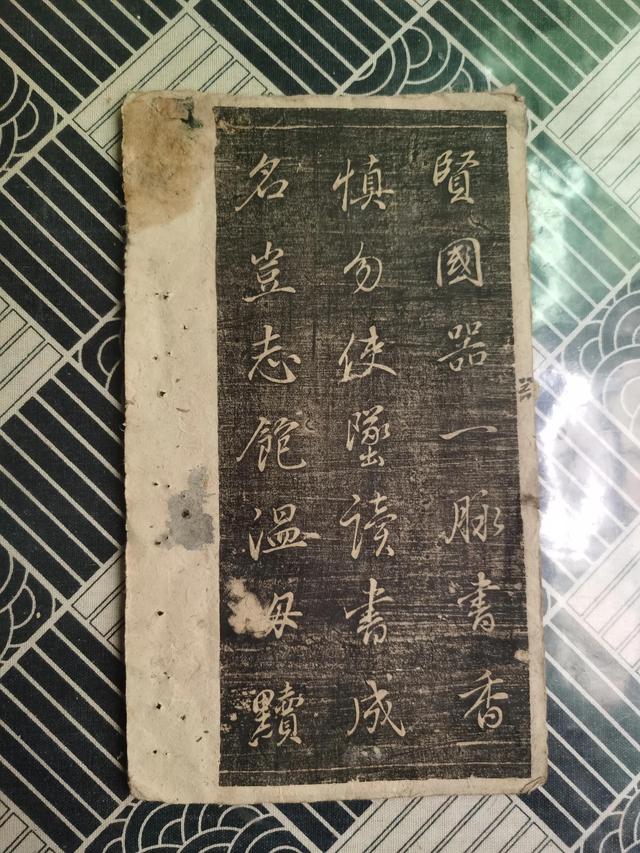 賢國器一脉書香
慎勿使墜讀書成
名豈志飽溫毋黷